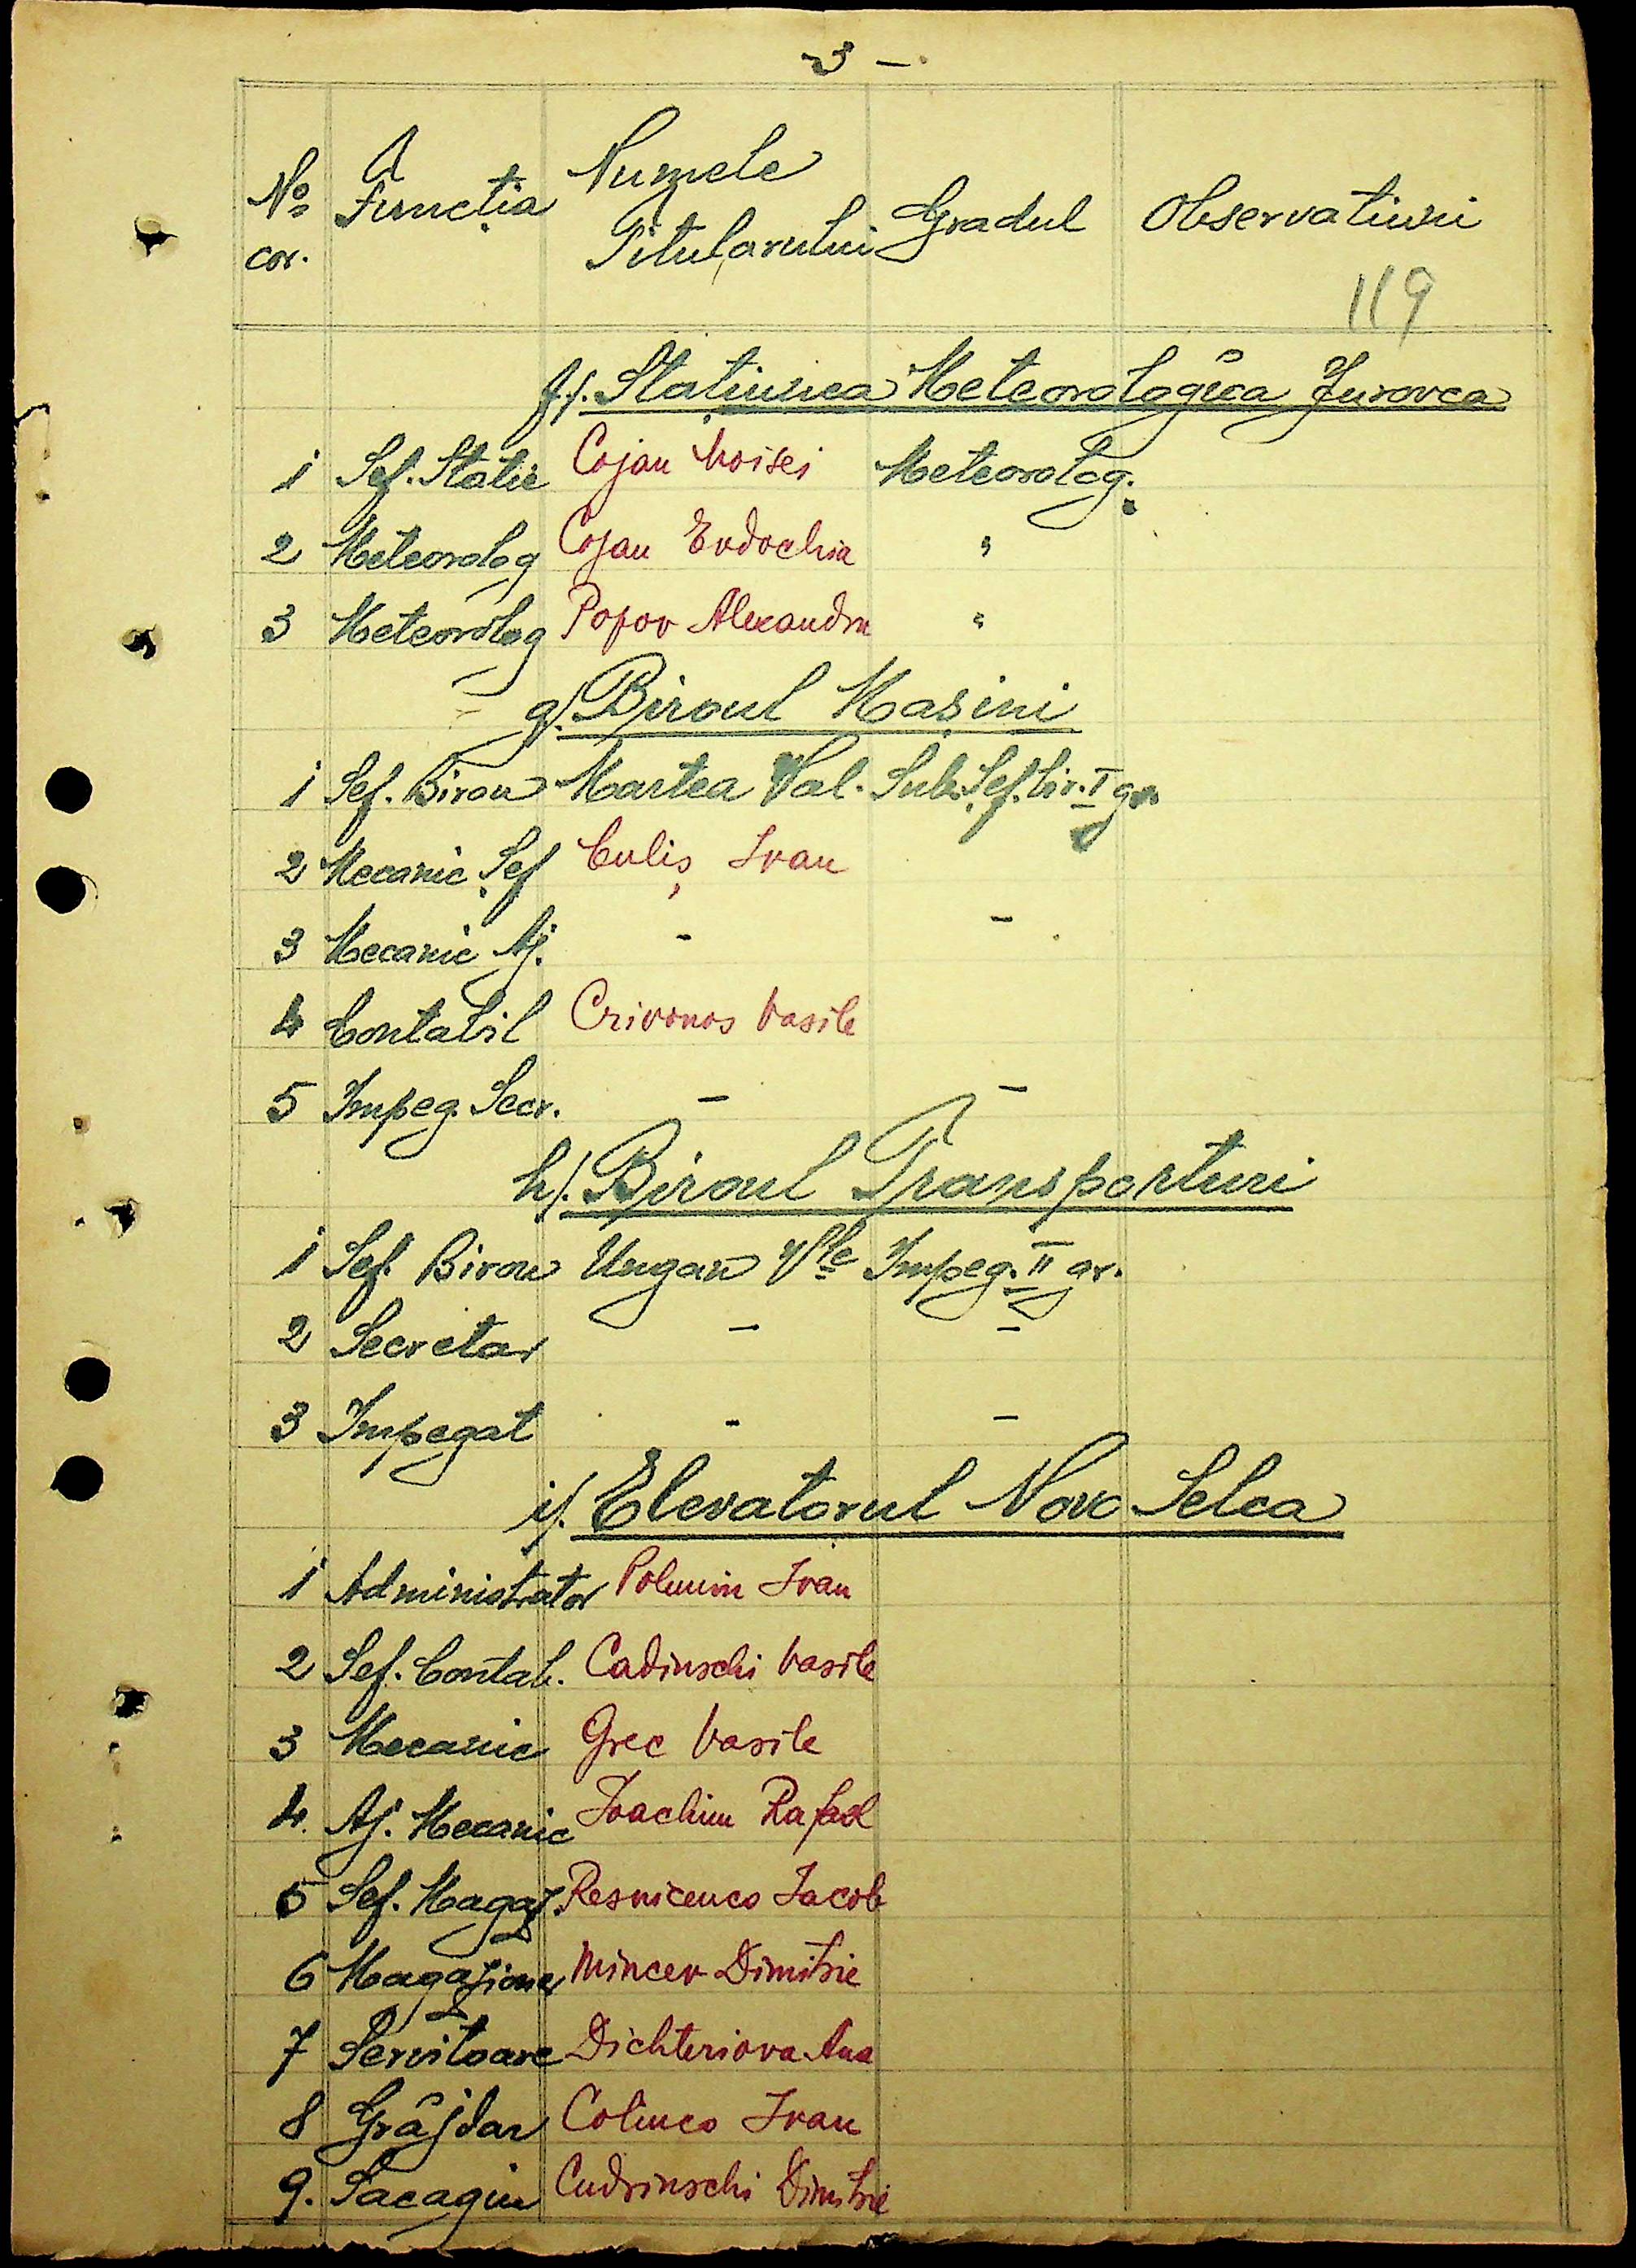 -3-
No cor. Funcția Numele Titularului Gradul Observatiuni
119
f/. Stațiunea Meteorologica Jurovca
1 Sef. Statie Cojan Moisei Meteorolog.
2 Meteorolog Cojan Evdochia "
3 Meteorolog Popov Alexandru "
g/. Biroul Mașini
1 Sef. Birou Martea Val. Sub. Sef. bir. I gr.
2 Mecanic Șef Culiș Ivan
3 Mecanic Aj. - -
4 Contabil Crivonos Vasile
5 Impeg. Secr. - -
h/. Biroul Transporturi
1 Sef. Birou Ungan Vle Impeg. II gr.
2 Secretar - -
3 Impegat - -
i/. Elevatorul Novo Selca
1 Administrator Ivan
2 Sef. Contab. Cadinschi Vasile
3 Mecanic Grec Vasile
4. Aj. Mecanic Ioachim Rafael
5 Sef. Magaz. Resnicenco Iacob
6 Magazioner Mincev Dimitrie
7 Servitoare Dichteriova Ana
8 Grăjdar Ivan
9. Sacagiu Cudrinschi Dimitrie